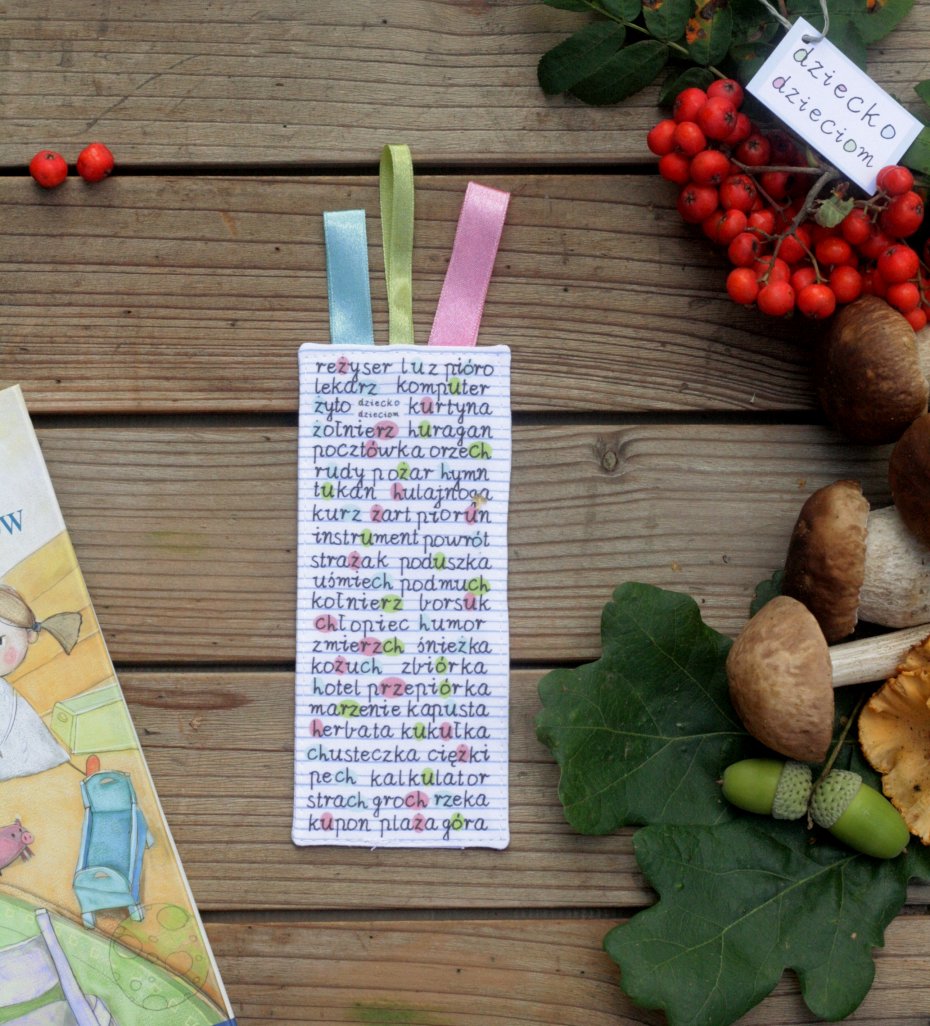 dziecko
dzieciom
reżyser luz pióro
lekarz komputer
żyto dziecko dzieciom kurtyna
żołnierz huragan
pocztówka orzech
rudy pożar hymn
tukan hulajnoga
kurz żart piorun
instrument powrót
strażak poduszka
uśmiech podmuch
kołnierz borsuk
chłopiec humor
zmierzch śnieżka
kożuch zbiórka
hotel przepiórka
marzenie kapusta
herbata kukułka
chusteczka ciężki
pech kalkulator
strach groch rzeka
kupon plaża góra
W